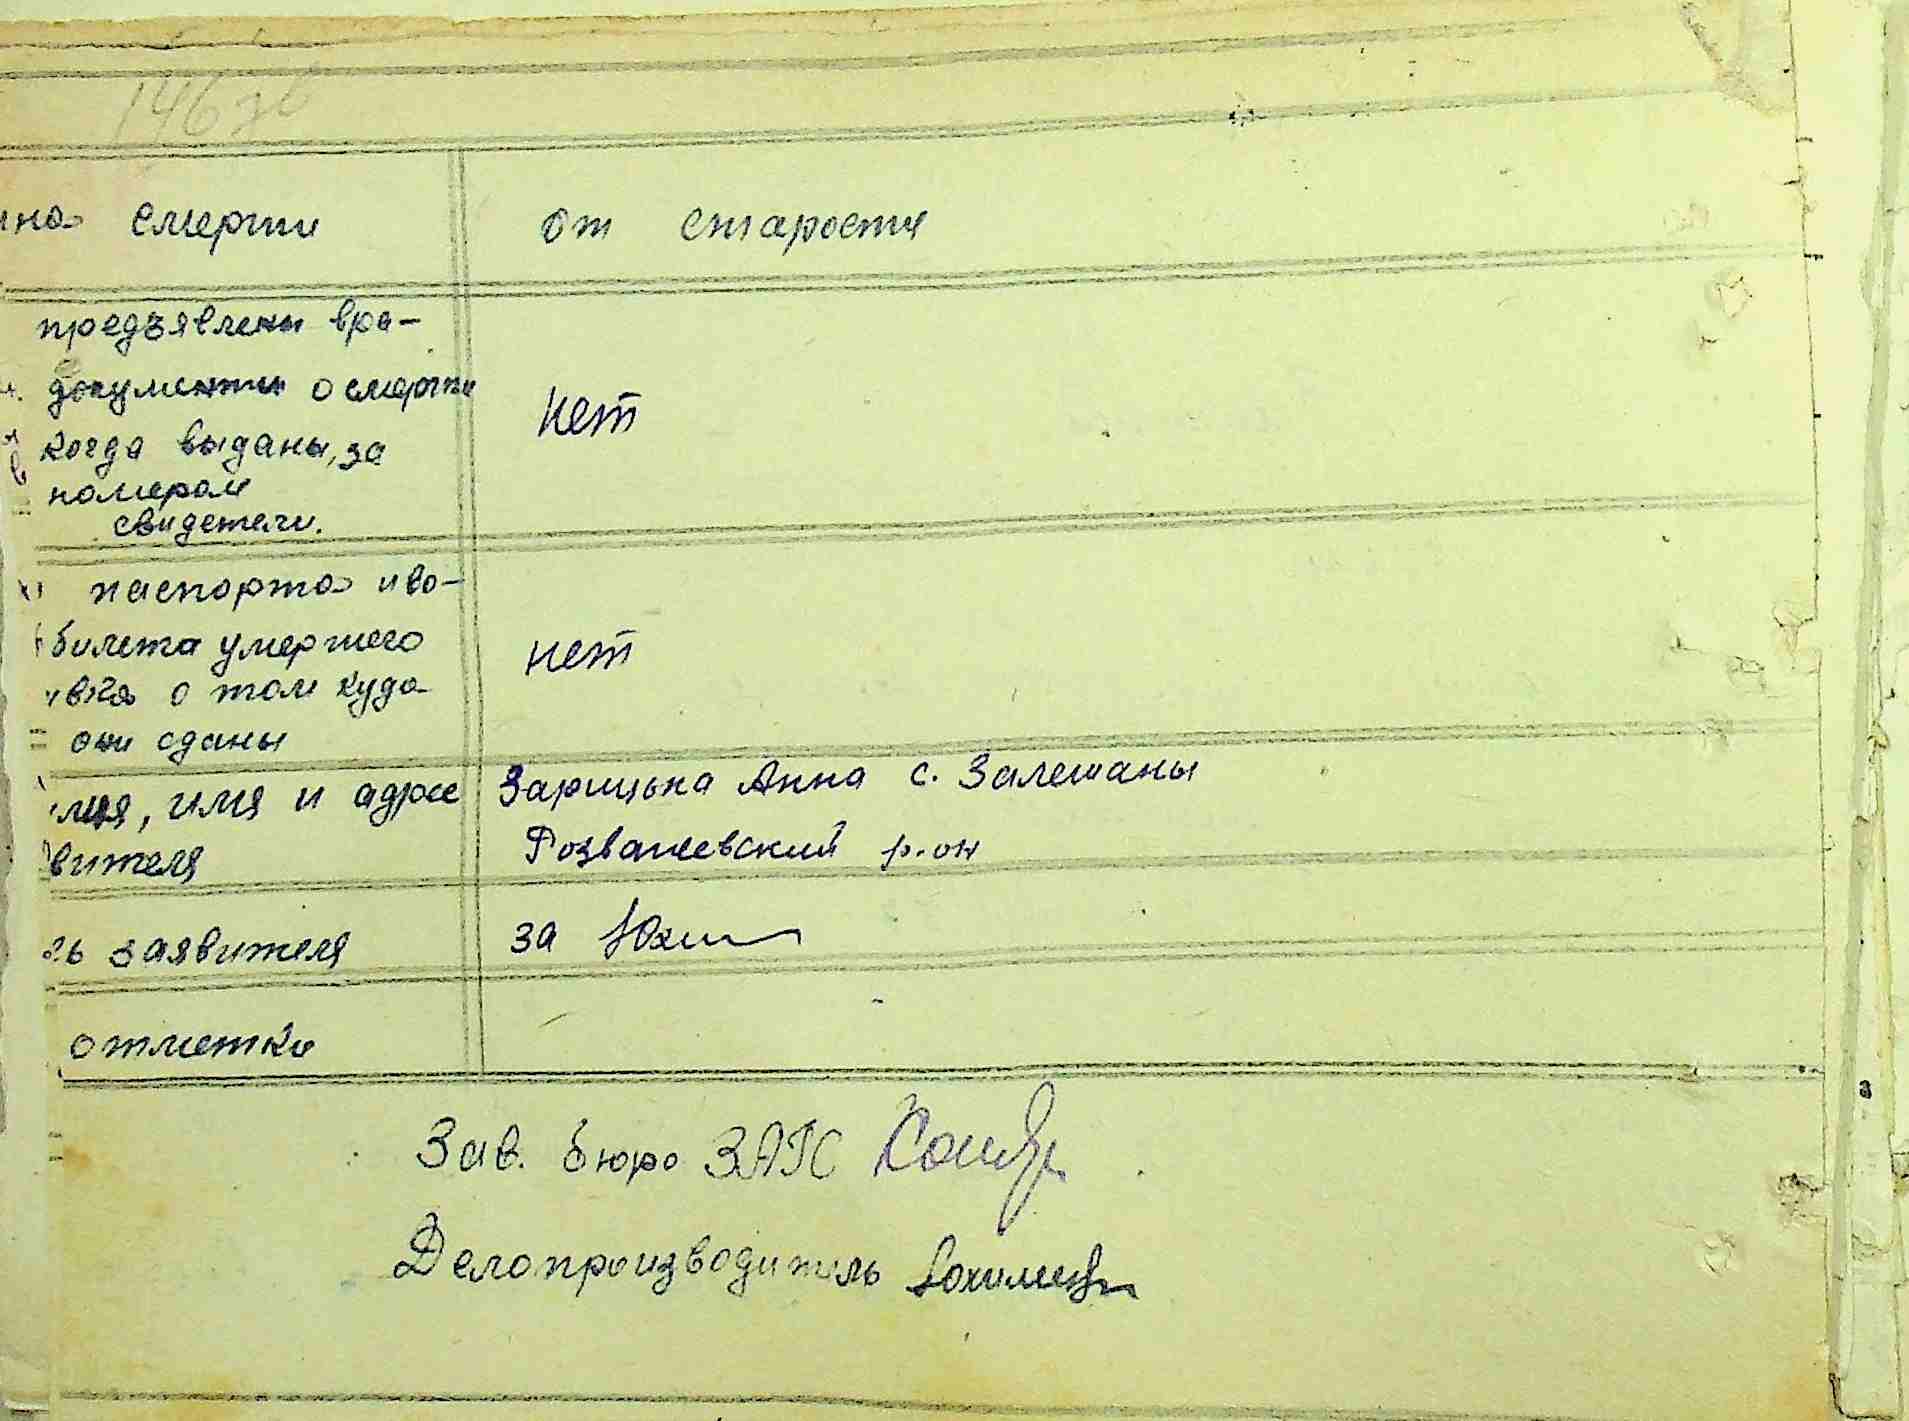 146 зв
ина смерти
от старости
предъявлены вра-
документы о смерти
когда выданы, за
номером
свидетели.
нет
паспорта и во-
билета умершего
о том куда
они сданы
нет
имя и адрес
вителя
Зарицька Анна с. Залешаны
Розважевский р-он
ь заявителя
за Юхим
отметки
Зав. бюро ЗАГС
Делопроизводитель